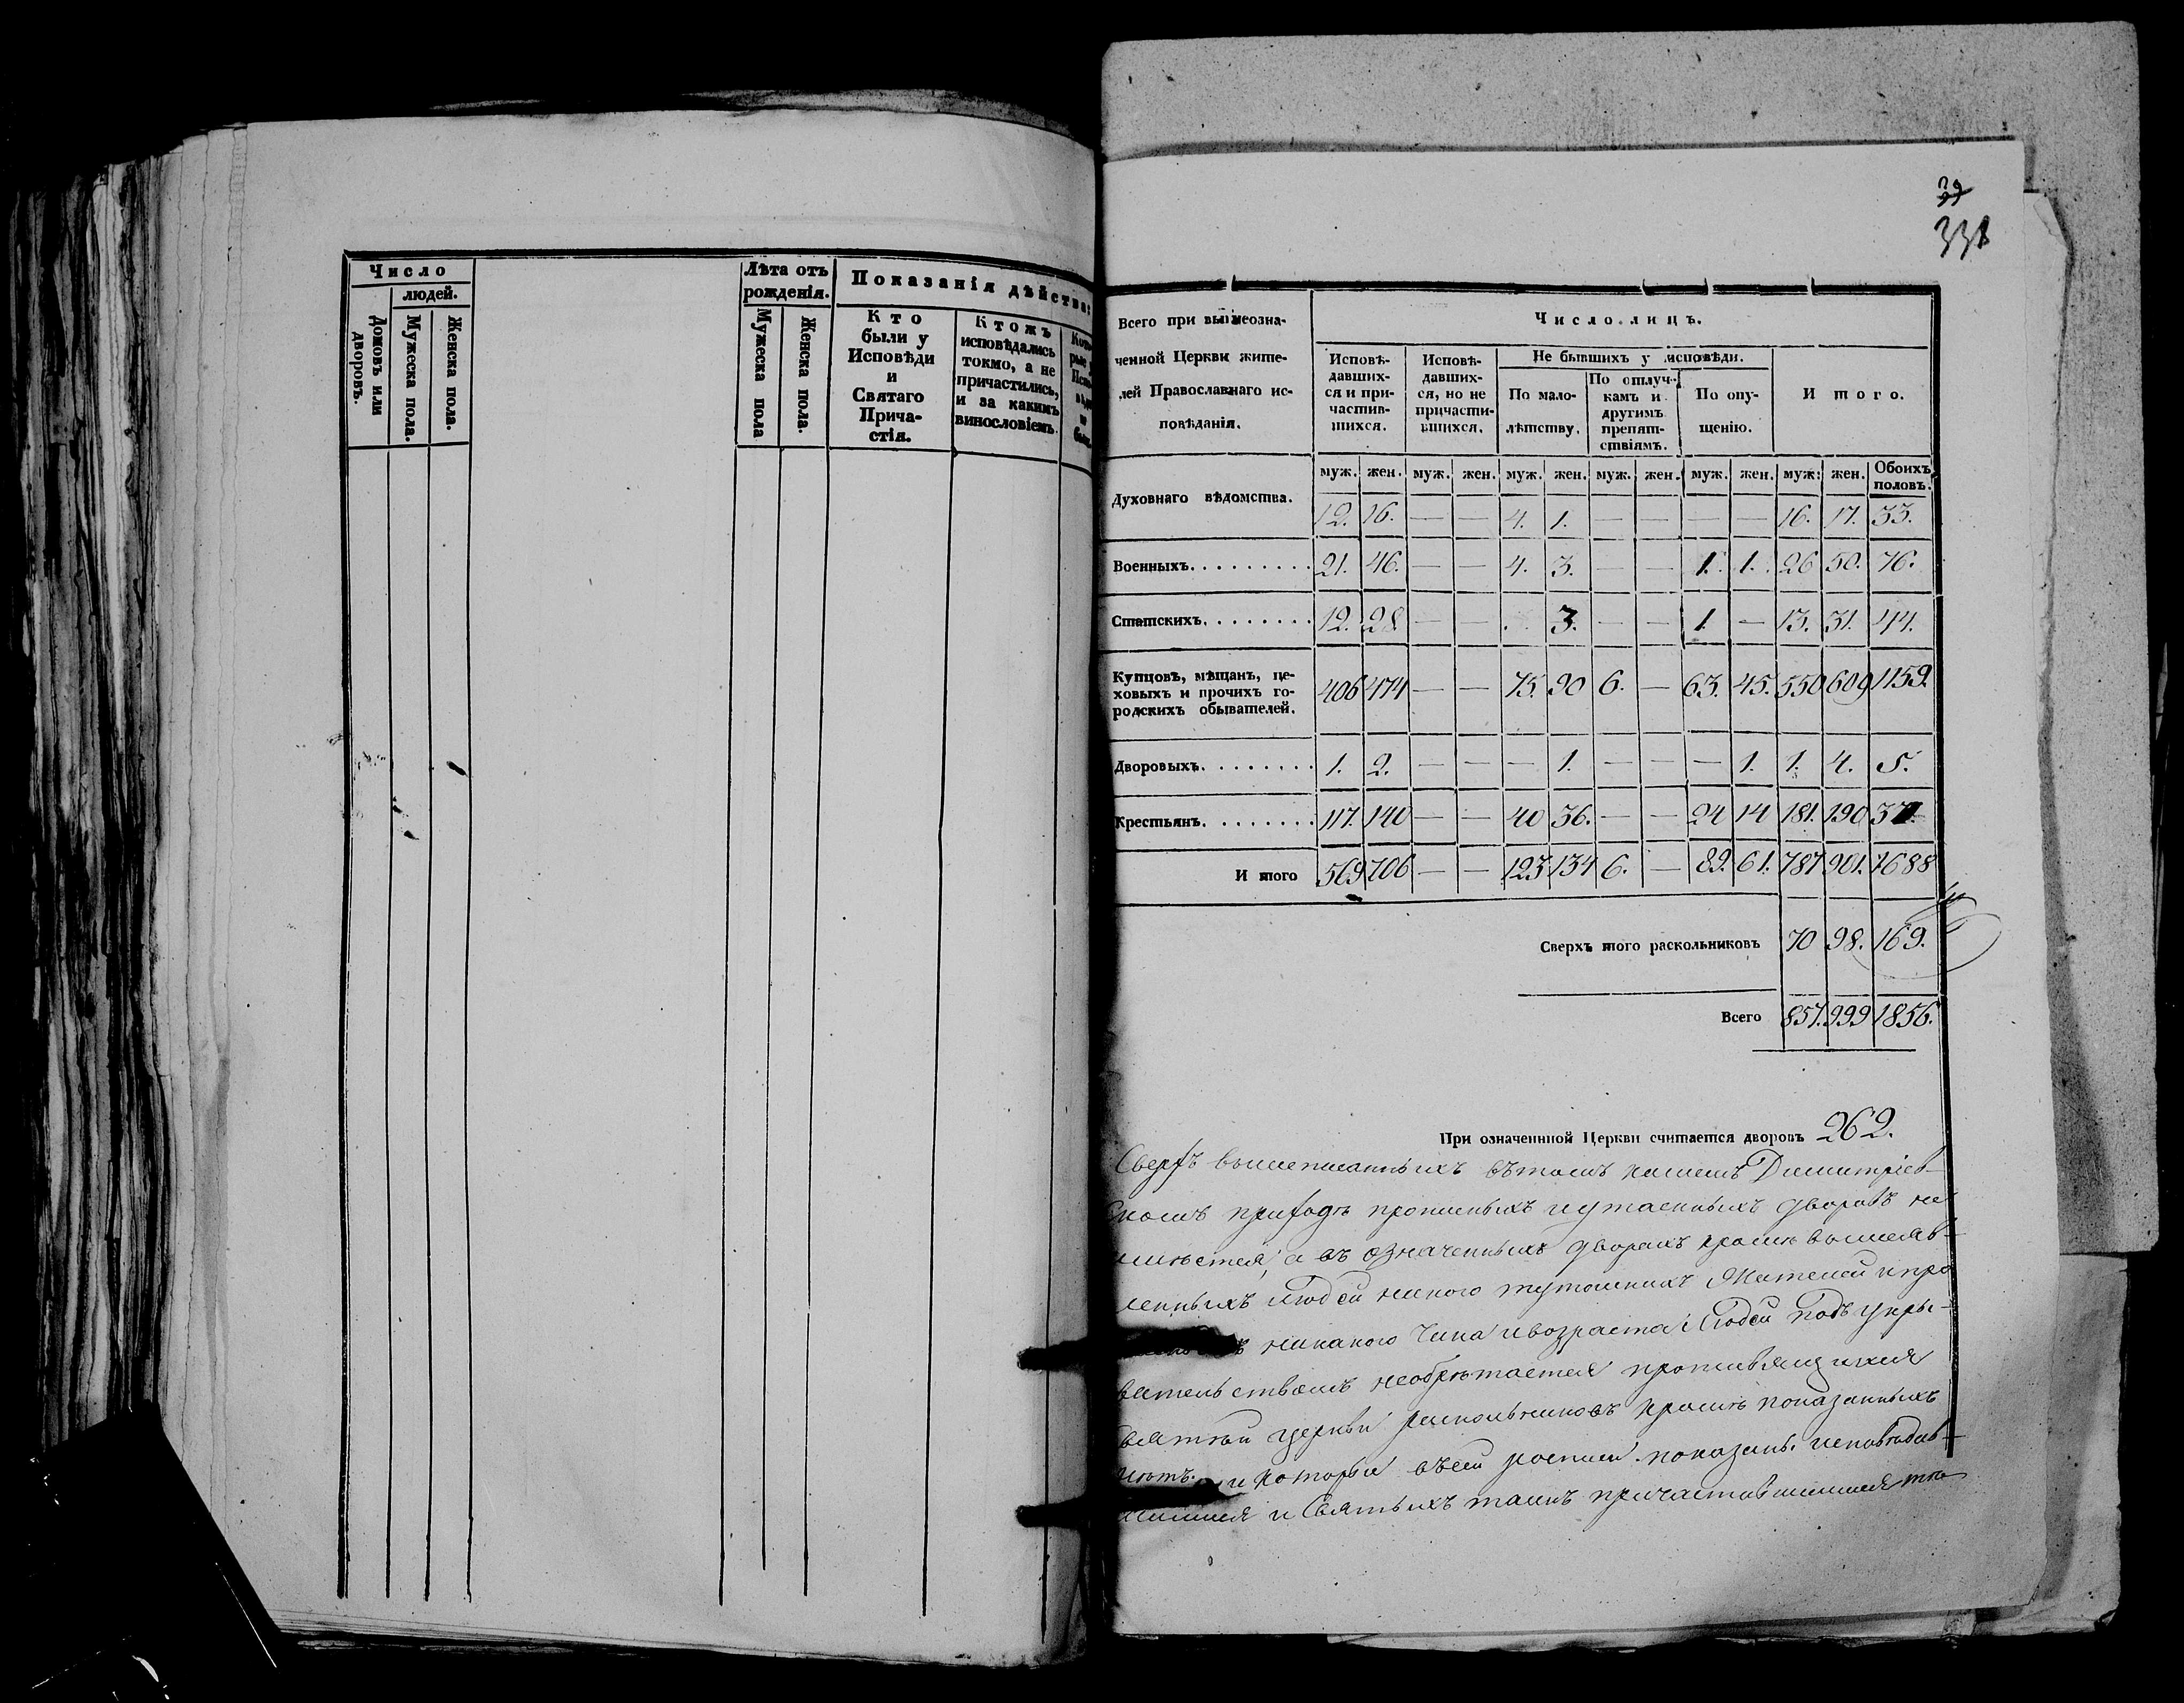 Число
людей.
Домовъ или дворовъ.
Мужеска пола.
Женска пола.
Лѣта отъ рожденія.
Мужеска пола
Женска пола.
Показанія дѣйства:
Кто были у Исповѣди и Святаго Причастія.
Ктожъ исповѣдались токмо, а не причастились, и за какимъ винословіемъ.
39
338
Всего при вышеозна-
ченной Церкви жите-
лей Православнаго ис-
повѣданія.
Число лицъ.
Исповѣ-
давших-
ся и при-
частив-
шихся.
Исповѣ-
давших-
ся, но не
причасти-
вшихся.
Не бывшихъ у исповѣди.
По мало-
лѣтству.
По отлуч-
камъ и
другимъ
препят-
ствіямъ.
По опу-
щенію.
Итого.
муж. жен. муж. жен. муж. жен. муж. жен. муж. жен. муж. жен. Обоихъ половъ.
Духовнаго вѣдомства. 12. 16. — — 4. 1. — — — — 16. 17. 33.
Военныхъ. 21. 46. — — 4. 3. — — 1. 1. 26 50. 76.
Статскихъ. 12. 28. — — 3. — — 1. — 13. 31. 44.
Купцовъ, мѣщанъ, це-
ховыхъ и прочихъ го-
родскихъ обывателей. 406 474 — — 75. 90 6. — 63. 45. 550 609 1159.
Дворовыхъ. 1. 2. — — — 1. — — — 1. 1. 4. 5.
Крестьянъ. 117. 140 — — 40 36. — — 24 14 181. 190 371.
Итого 569 706 — — 123 134 6. — 89. 61. 787 901. 1688
Сверхъ того раскольниковъ 70 98. 169.
Всего 857. 999 1856.
При означеннной Церкви считается дворовъ 262.
Сверхъ вышеписанныхъ вътомъ нашемъ Димитріев-
скомъ приходѣ прописныхъ иутаенныхъ дворовъ не
имѣется, а въ означенныхъ дворахъ кромѣ вышеяв-
ленныхъ людей никого тутошнихъ жителей ипро
никакого чина ивозраста людей подъ укры-
вательствомъ необрѣтается противящихся
святѣй церкви раскольниковъ кромѣ показанныхъ
нѣтъ. и которыя въсей росписи показаны исповѣдав-
шимися и Святыхъ таинъ причастившимися тѣ